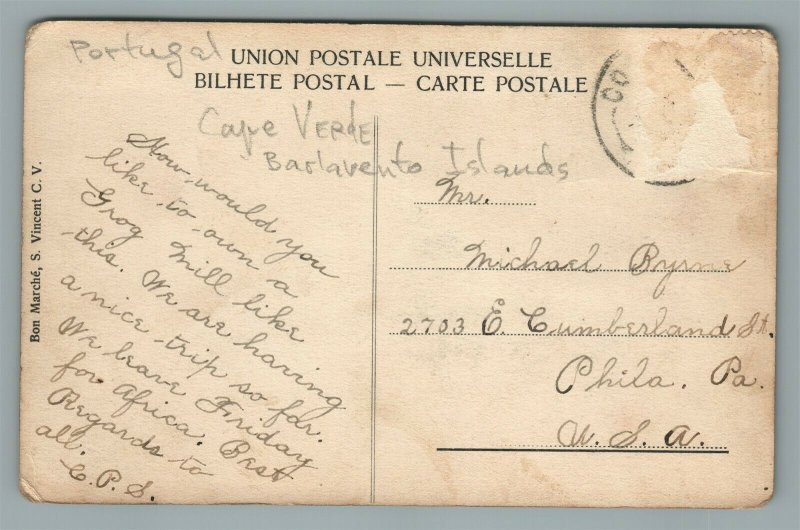 Portugal
UNION POSTALE UNIVERSELLE
BILHETE POSTAL — CARTE POSTALE
Cape VERDE
Barlavento Islands
Bon Marché, S. Vincent C. V.
How would you
like to own a
Grog Mill like
this. We are having
a nice trip so far.
We leave Friday
for Africa. Best
Regards to
all.
C. P. S.
Mr.
Michael Byrne
2703 E. Cumberland St.
Phila. Pa.
U. S. A.